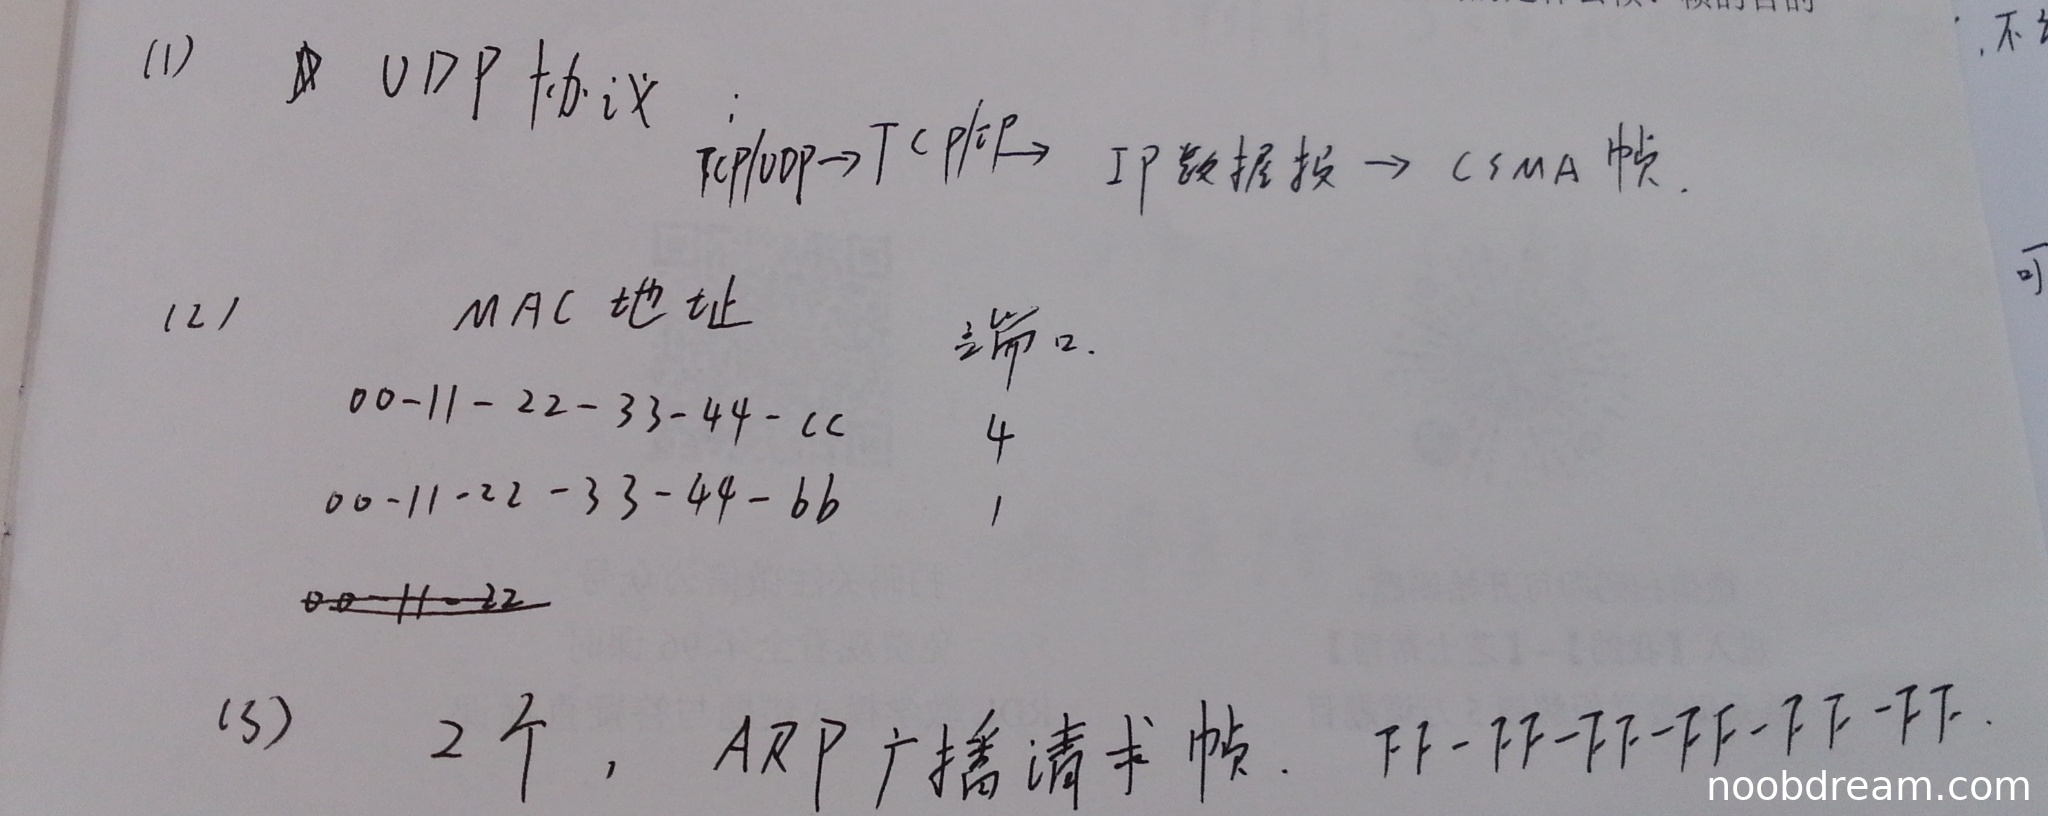 (1) UDP协议
TCP/UDP→TCP/IP→ IP数据报 → CSMA帧.
(2) MAC地址 端口.
00-11-22-33-44-cc 4
00-11-22-33-44-bb 1
00-11-22
(3) 2个, ARP广播请求帧. FF-FF-FF-FF-FF-FF.
不
可
noobdream.com